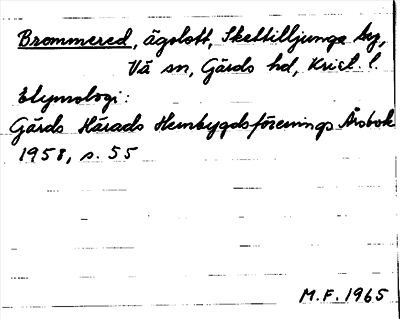 Brommered, ägolott, Skettilljunga by,
Vä sn, Gärds hd, Krist. l.
Etymologi:
Gärds Härads Hembygdsförenings Årsbok
1958, s. 55
M.F. 1965